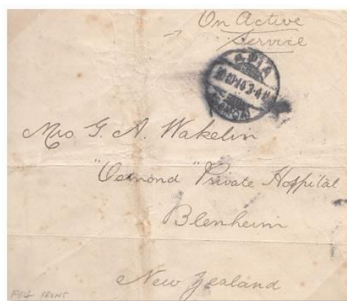 On Active
Service
APIA
Mrs G. A. Wakelin
"Osmond" Private Hospital
Blenheim
New Zealand
FRONT